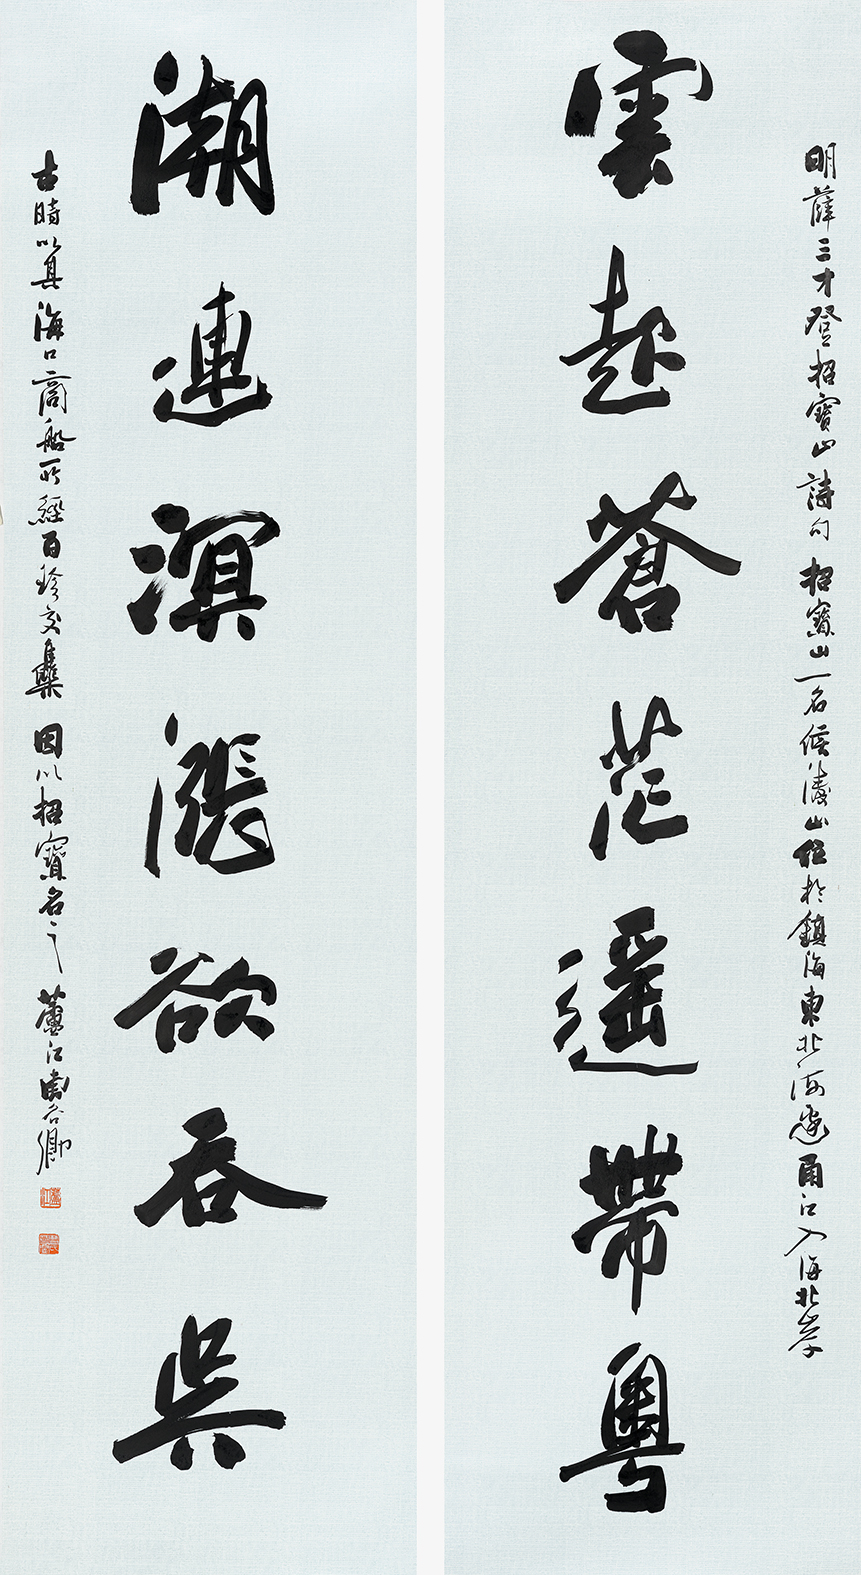 明薛三才登招寶山詩句招寶山一名候濤山位於鎮海東北海邊甬江入海北岸
雲起蒼茫遥帶粵
潮連溟漲欲吞吳
古時以其海口商船所經百珍交集因以招寶名之蘆江周谷卿